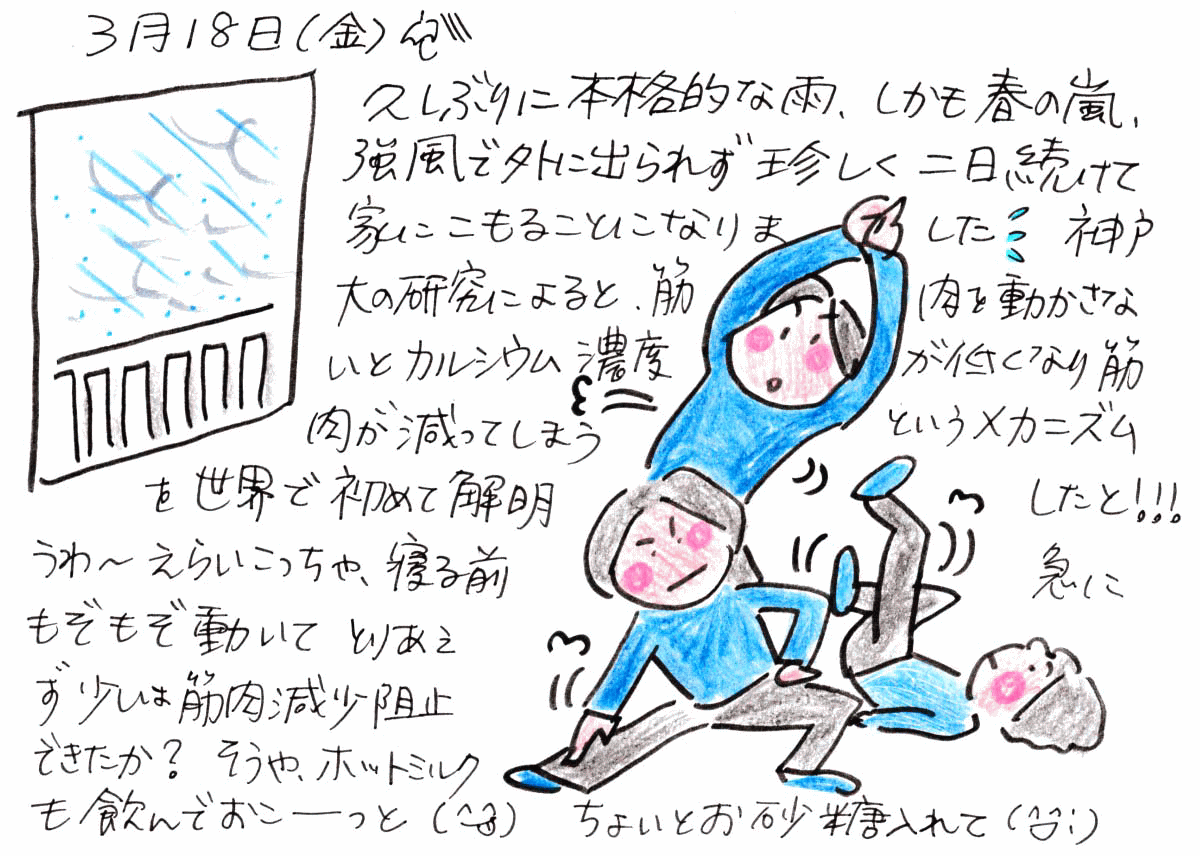 3月18日(金)
久しぶりに本格的な雨、しかも春の嵐、
強風で外に出られず珍しく二日続けて
家にこもることになりました 神戸
大の研究によると、筋肉を動かさな
いとカルシウム濃度が低くなり筋
肉が減ってしまうというメカニズム
を世界で初めて解明したと!!!
うわ～えらいこっちゃ、寝る前急に
もぞもぞ動いて とりあえ
ず少しは筋肉減少阻止
できたか? そうや、ホットミルク
も飲んでおこーっと (^^) ちょいとお砂糖入れて (^^;)